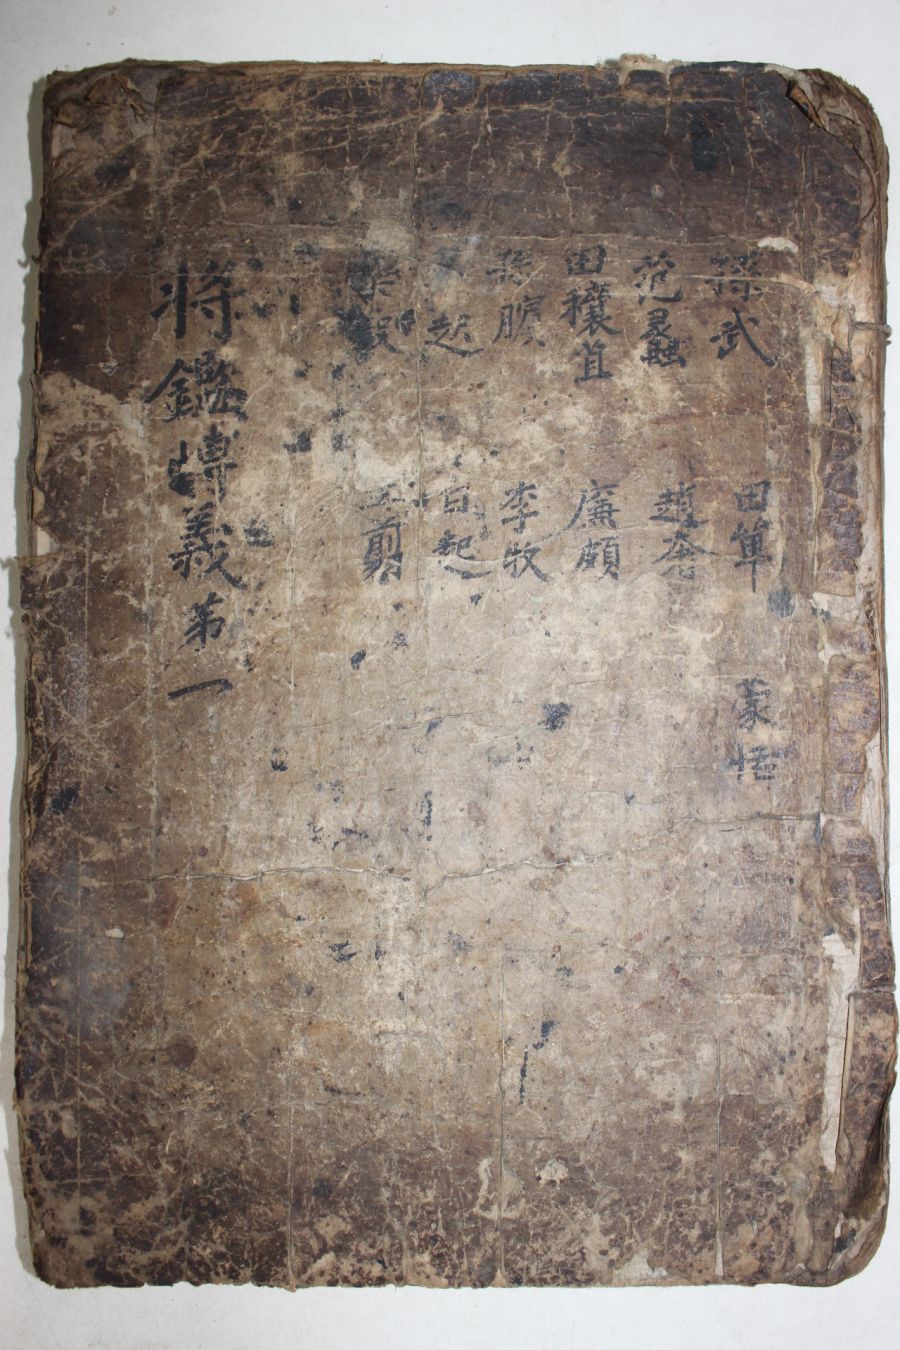 孫武
范蠡
田穰苴
孫臏
起
樂毅
田單
趙奢
廉頗
李牧
白起
王剪
蒙恬
將鑑博義第一